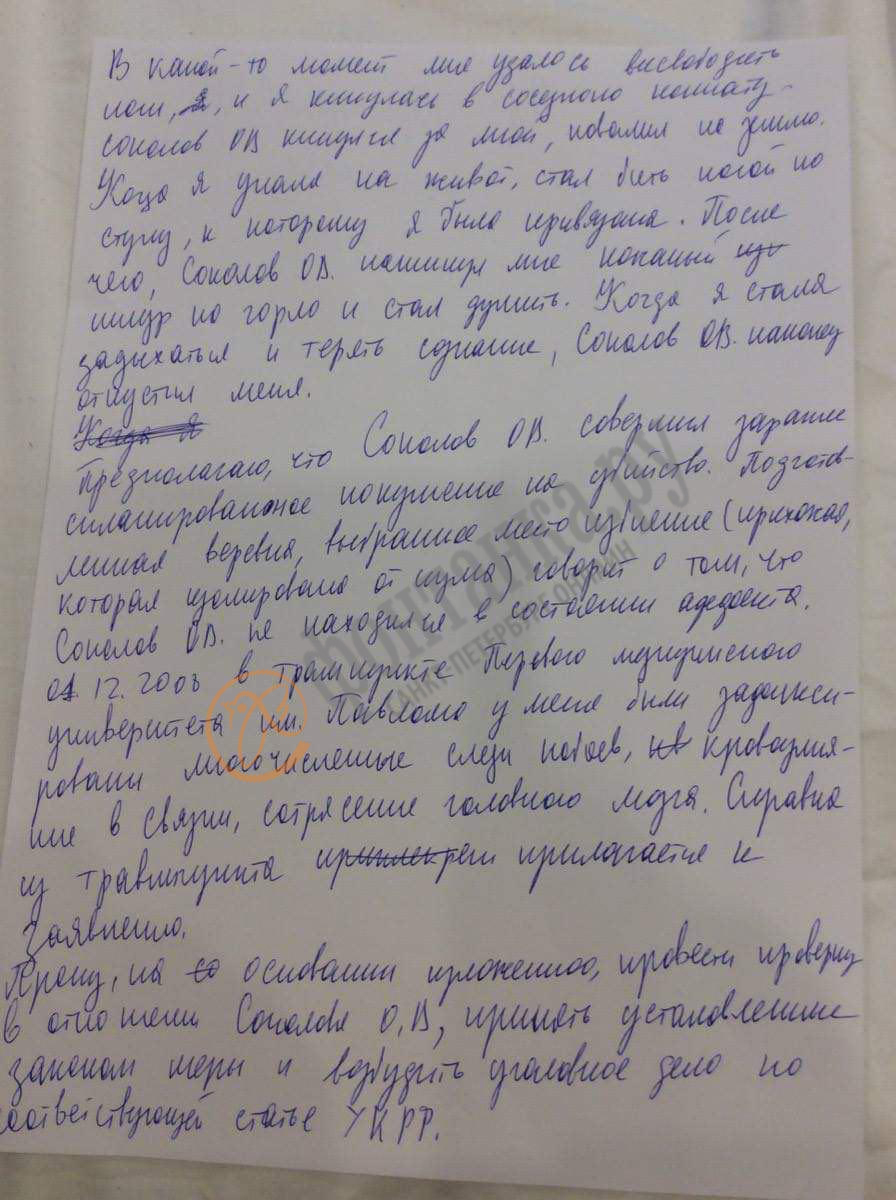 В какой-то момент мне удалось высвободить
ноги, я, и я кинулась в соседнюю комнату.
Соколов ОВ кинулся за мной, повалил на землю.
Когда я упала на живот, стал бить ногой по
стулу, к которому я была привязана. После
чего, Соколов ОВ. накинул мне кожаный
шнур на горло и стал душить. Когда я стала
задыхаться и терять сознание, Соколов ОВ. наконец
отпустил меня.
Когда я
Предполагаю, что Соколов ОВ. совершил заранее
спланированное покушение на убийство. Подготов-
ленная веревка, выбранное место избиение (прихожая,
которая изолирована от шума) говорят о том, что
Соколов ОВ. не находился в состоянии аффекта.
12.2008 в травмпункте Первого медицинского
университета им. Павлова у меня были задокумен-
рованы многочисленные следы побоев, кровоизлия-
ние в связки, сотрясение головного мозга. Справка
из травмпункта прилагается к
заявлению.
Прошу, на основании изложенного, провести проверку
в отношении Соколова О.В, принять установленные
законом меры и возбудить уголовное дело по
соответствующей статье УК РФ.
Фонтанка.ру
САНКТ-ПЕТЕРБУРГ ОНЛАЙН